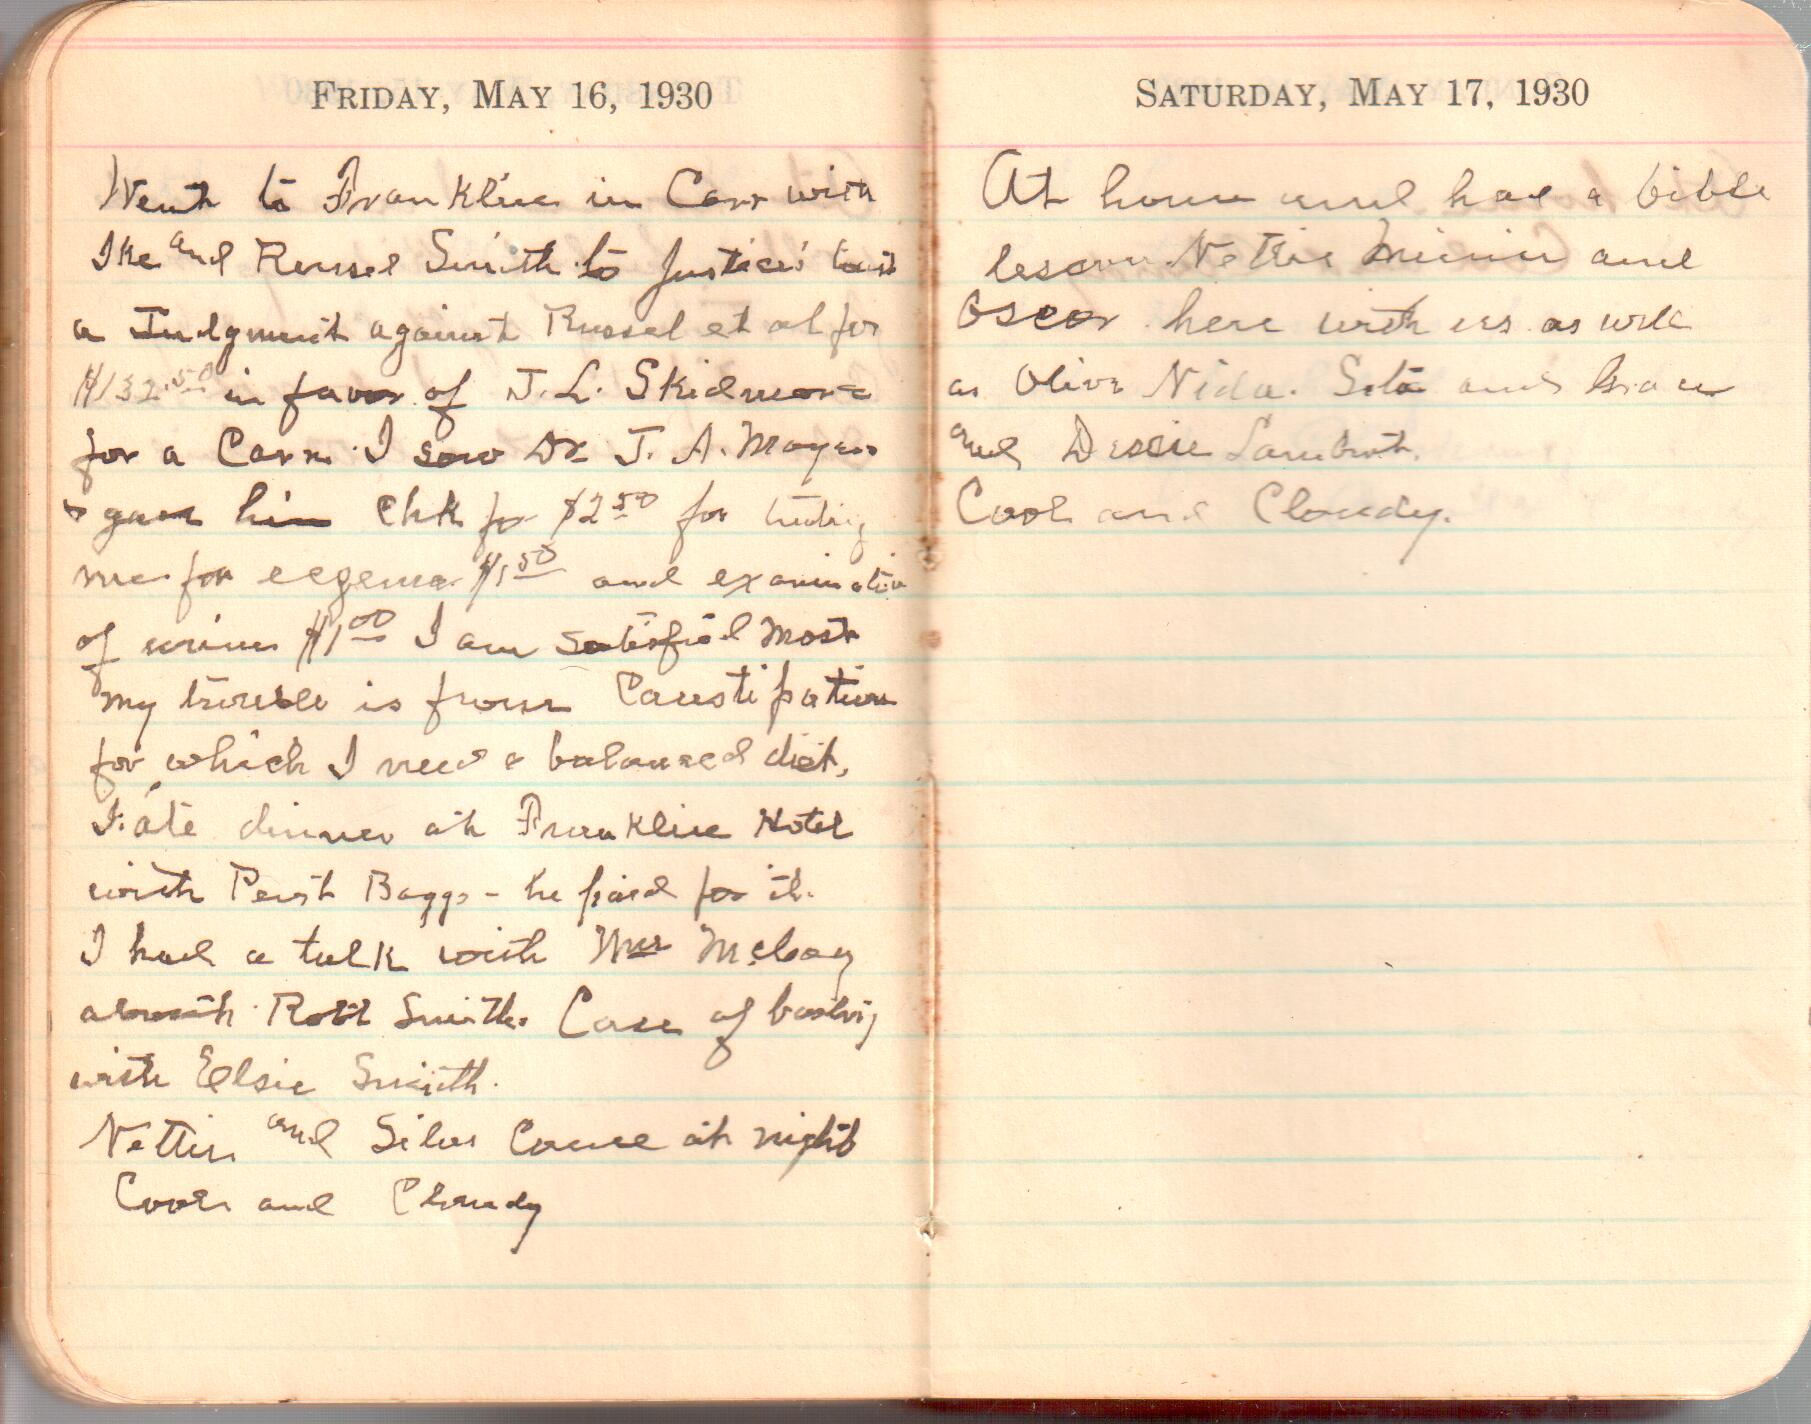 FRIDAY, MAY 16, 1930
Went to Franklin in Carr with
Ike and Russel Smith to Justice's Court
a Judgment against Russel et al for
$132.50 in favor of J. L. Skidmore
for a Carr. I saw Dr J. A.
& gave him Chk for $2.50 for
me for eczema $1.50 and examination
of urine $1.00 I am satisfied most
my trouble is from Constipation
for which I need a balanced diet,
I ate dinner at Franklin Hotel
with Boggs - he paid for it.
I had a talk with McCoy
about Smith Case of
with Elsie Smith.
Nettie and Silas Came at night
Cool and Cloudy
SATURDAY, MAY 17, 1930
At home and had a bible
lesson Nettie and
Oscar here with us as well
as Olive Nida. and
and Dessie
Cool and Cloudy.